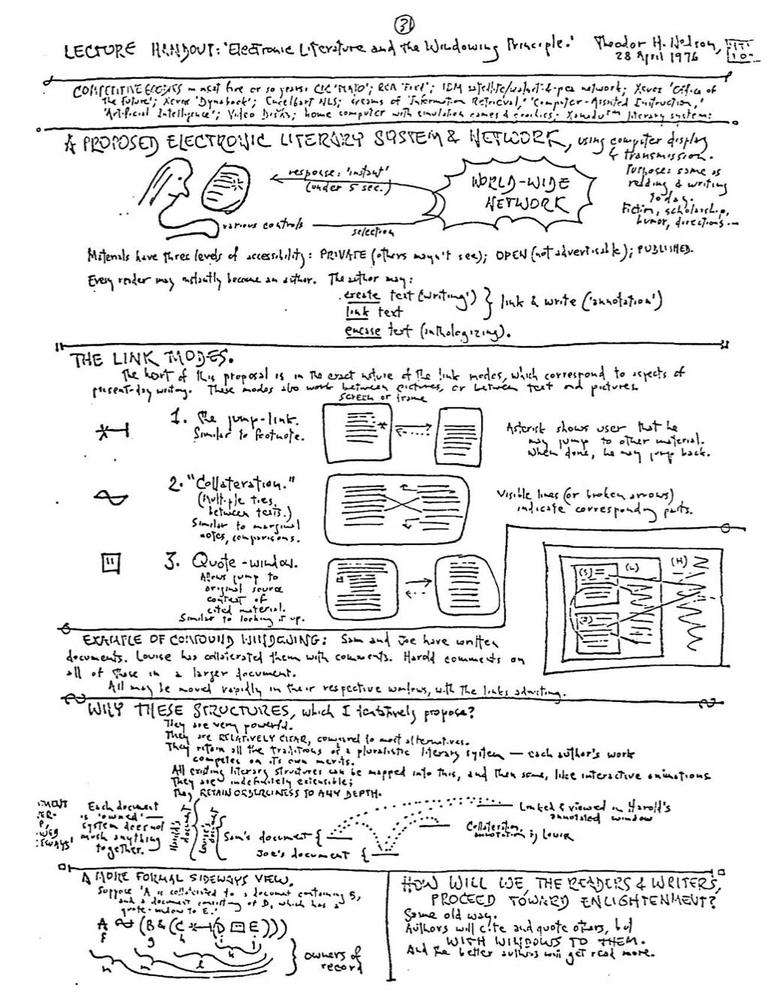 31
LECTURE HANDOUT: 'Electronic Literature and the Windowing Principle.' Theodor H. Nelson,
28 April 1976
COMPETITIVE SCENES — next five or so years: CDC 'PLATO'; RCA; IBM satellite network; Xerox 'Office of
the Future'; Xerox 'Dynabook'; Engelbart NLS; dreams of 'Information Retrieval,' 'Computer-Assisted Instruction,'
'Artificial Intelligence'; Video Disks; home computer with Xanadu™ literary system:
A PROPOSED ELECTRONIC LITERARY SYSTEM & NETWORK, using computer display
& transmission.
Purpose: same as
reading & writing
today.
Fiction, scholarship,
humor, directions...
response: 'instant'
(under 5 sec.)
WORLD-WIDE
NETWORK
various controls
selection
Materials have three levels of accessibility: PRIVATE (others mayn't see); OPEN (not advertisable); PUBLISHED.
Every reader may instantly become an author. The author may:
create text ('writing')
link text
} link & write ('annotation')
encase text (anthologizing).
THE LINK MODES.
The heart of this proposal is in the exact nature of the link modes, which correspond to aspects of
present-day writing. These modes also work between pictures, or between text and pictures.
screen or frame
1. The jump-link.
Similar to footnote.
Asterisk shows user that he
may jump to other material.
When done, he may jump back.
2. "Collateration."
(Multiple ties
between texts.)
Similar to marginal
notes, comparisons.
Visible lines (or broken arrows)
indicate corresponding parts.
3. Quote-window.
Allows jump to
original source
context of
cited material.
Similar to looking it up.
(S) (L) (H)
(J)
EXAMPLE OF COMPOUND WINDOWING: Sam and Joe have written
documents. Louise has collaterated them with comments. Harold comments on
all of these in a larger document.
All may be moved rapidly in their respective windows, with the links adjusting.
WHY THESE STRUCTURES, which I tentatively propose?
They are very powerful.
They are RELATIVELY CLEAR, compared to most alternatives.
They retain all the traditions of a pluralistic literary system — each author's work
competes on its own merits.
All existing literary structures can be mapped into this, and then some, like interactive animations
They are indefinitely extensible;
They RETAIN ORDERLINESS TO ANY DEPTH.
Each document
is 'owned'—
system does not
mush anything
together.
Harold's document
Louise's document
Sam's document {
Joe's document {
Linked & viewed in Harold's
annotated window
Collateration
annotation by Louise
A MORE FORMAL SIDEWAYS VIEW.
Suppose 'A is collaterated to a document containing B,
and a document consisting of D, which has a
quote-window to E.'
A (B & (C (D E)))
owners of
record
HOW WILL WE, THE READERS & WRITERS,
PROCEED TOWARD ENLIGHTENMENT?
Same old way.
Authors will cite and quote others, but
WITH WINDOWS TO THEM.
And the better authors will get read more.